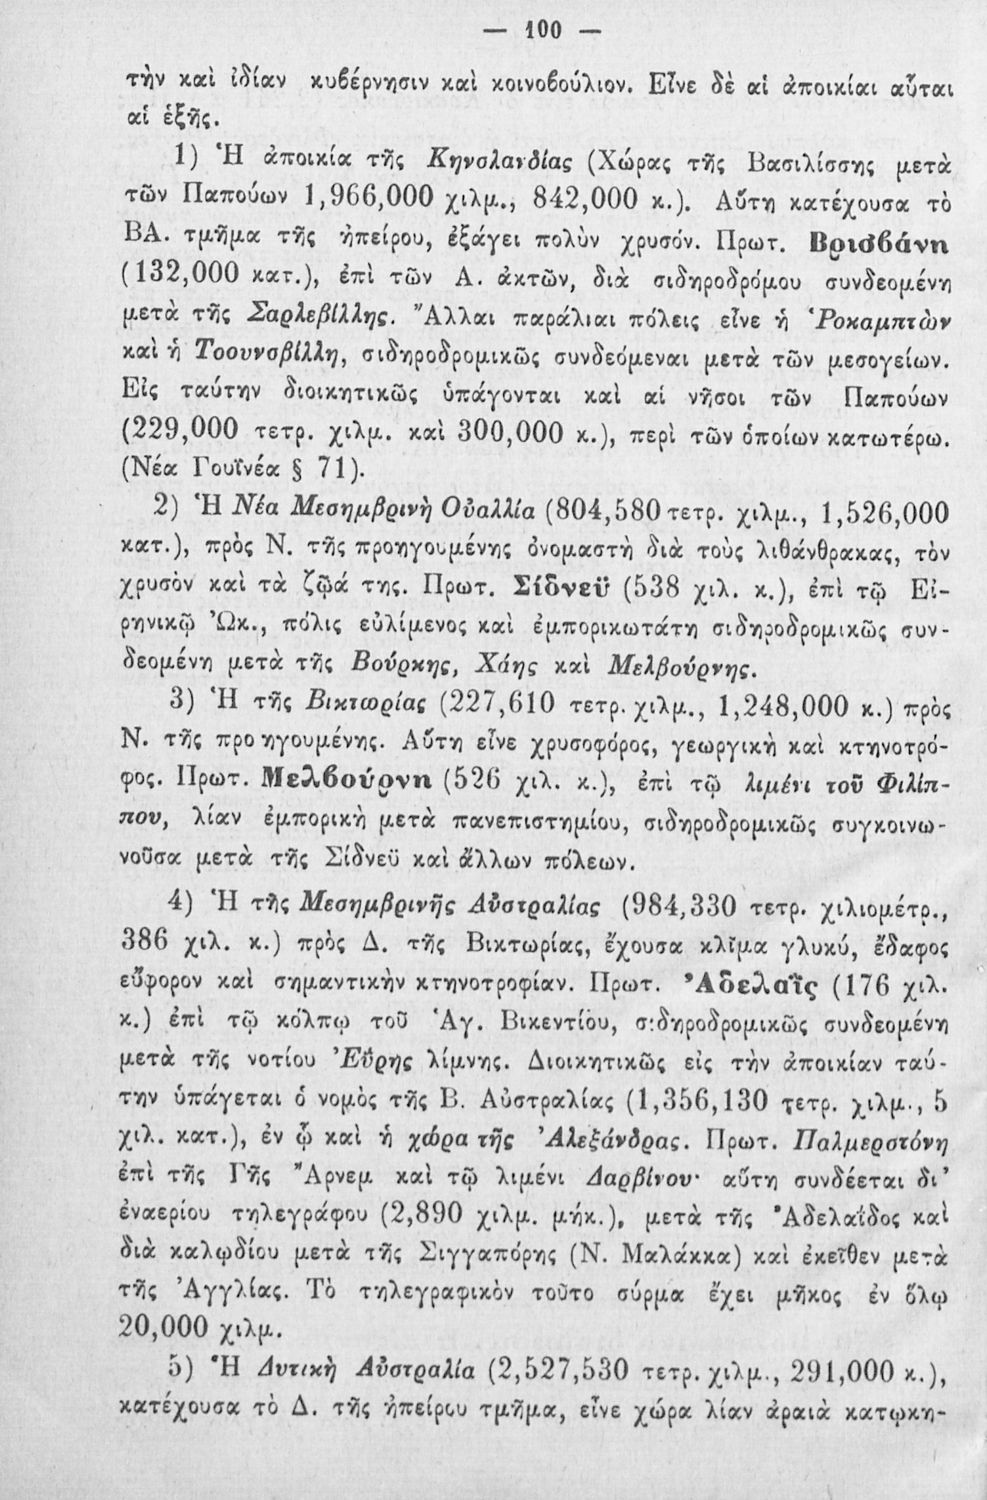 — 100 —
τὴν καὶ ἰδίαν κυβέρνησιν καὶ κοινοβούλιον. Εἶνε δὲ αἱ ἀποικίαι αὗται
αἱ ἑξῆς.
1) Ἡ ἀποικία τῆς Κηνσλανδίας (Χώρας τῆς Βασιλίσσης μετὰ
τῶν Παπούων 1,966,000 χιλμ., 842,000 κ.). Αὕτη κατέχουσα τὸ
ΒΑ. τμῆμα τῆς ἠπείρου, ἐξάγει πολὺν χρυσόν. Πρωτ. Βρισβάνη
(132,000 κατ.), ἐπὶ τῶν Α. ἀκτῶν, διὰ σιδηροδρόμου συνδεομένη
μετὰ τῆς Σαρλεβίλλης. Ἄλλαι παράλιαι πόλεις εἶνε ἡ Ῥοκαμπτὼν
καὶ ἡ Τοουνσβίλλη, σιδηροδρομικῶς συνδεόμεναι μετὰ τῶν μεσογείων.
Εἰς ταύτην διοικητικῶς ὑπάγονται καὶ αἱ νῆσοι τῶν Παπούων
(229,000 τετρ. χιλμ. καὶ 300,000 κ.), περὶ τῶν ὁποίων κατωτέρω.
(Νέα Γουϊνέα § 71).
2) Ἡ Νέα Μεσημβρινὴ Οὐαλλία (804,580 τετρ. χιλμ., 1,526,000
κατ.), πρὸς Ν. τῆς προηγουμένης ὀνομαστὴ διὰ τοὺς λιθάνθρακας, τὸν
χρυσὸν καὶ τὰ ζῷά της. Πρωτ. Σίδνεϋ (538 χιλ. κ.), ἐπὶ τῷ Εἰ-
ρηνικῷ Ὠκ., πόλις εὐλίμενος καὶ ἐμπορικωτάτη σιδηροδρομικῶς συν-
δεομένη μετὰ τῆς Βούρκης, Χάης καὶ Μελβούρνης.
3) Ἡ τῆς Βικτωρίας (227,610 τετρ. χιλμ., 1,248,000 κ.) πρὸς
Ν. τῆς προηγουμένης. Αὕτη εἶνε χρυσοφόρος, γεωργικὴ καὶ κτηνοτρό-
φος. Πρωτ. Μελβούρνη (526 χιλ. κ.), ἐπὶ τῷ λιμένι τοῦ Φιλίπ-
που, λίαν ἐμπορικὴ μετὰ πανεπιστημίου, σιδηροδρομικῶς συγκοινω-
νοῦσα μετὰ τῆς Σίδνεϋ καὶ ἄλλων πόλεων.
4) Ἡ τῆς Μεσημβρινῆς Αὐστραλίας (984,330 τετρ. χιλιομέτρ.,
386 χιλ. κ.) πρὸς Δ. τῆς Βικτωρίας, ἔχουσα κλῖμα γλυκύ, ἔδαφος
εὔφορον καὶ σημαντικὴν κτηνοτροφίαν. Πρωτ. Ἀδελαΐς (176 χιλ.
κ.) ἐπὶ τῷ κόλπῳ τοῦ Ἁγ. Βικεντίου, σιδηροδρομικῶς συνδεομένη
μετὰ τῆς νοτίου Εὔρης λίμνης. Διοικητικῶς εἰς τὴν ἀποικίαν ταύ-
την ὑπάγεται ὁ νομὸς τῆς Β. Αὐστραλίας (1,356,130 τετρ. χιλμ., 5
χιλ. κατ.), ἐν ᾧ καὶ ἡ χώρα τῆς Ἀλεξάνδρας. Πρωτ. Παλμερστόνη
ἐπὶ τῆς Γῆς Ἄρνεμ καὶ τῷ λιμένι Δαρβίνου· αὕτη συνδέεται δι’
ἐναερίου τηλεγράφου (2,890 χιλμ. μήκ.), μετὰ τῆς Ἀδελαΐδος καὶ
διὰ καλῳδίου μετὰ τῆς Σιγγαπόρης (Ν. Μαλάκκα) καὶ ἐκεῖθεν μετὰ
τῆς Ἀγγλίας. Τὸ τηλεγραφικὸν τοῦτο σύρμα ἔχει μῆκος ἐν ὅλῳ
20,000 χιλμ.
5) Ἡ Δυτικὴ Αὐστραλία (2,527,530 τετρ. χιλμ., 291,000 κ.),
κατέχουσα τὸ Δ. τῆς ἠπείρου τμῆμα, εἶνε χώρα λίαν ἀραιὰ κατῳκη-